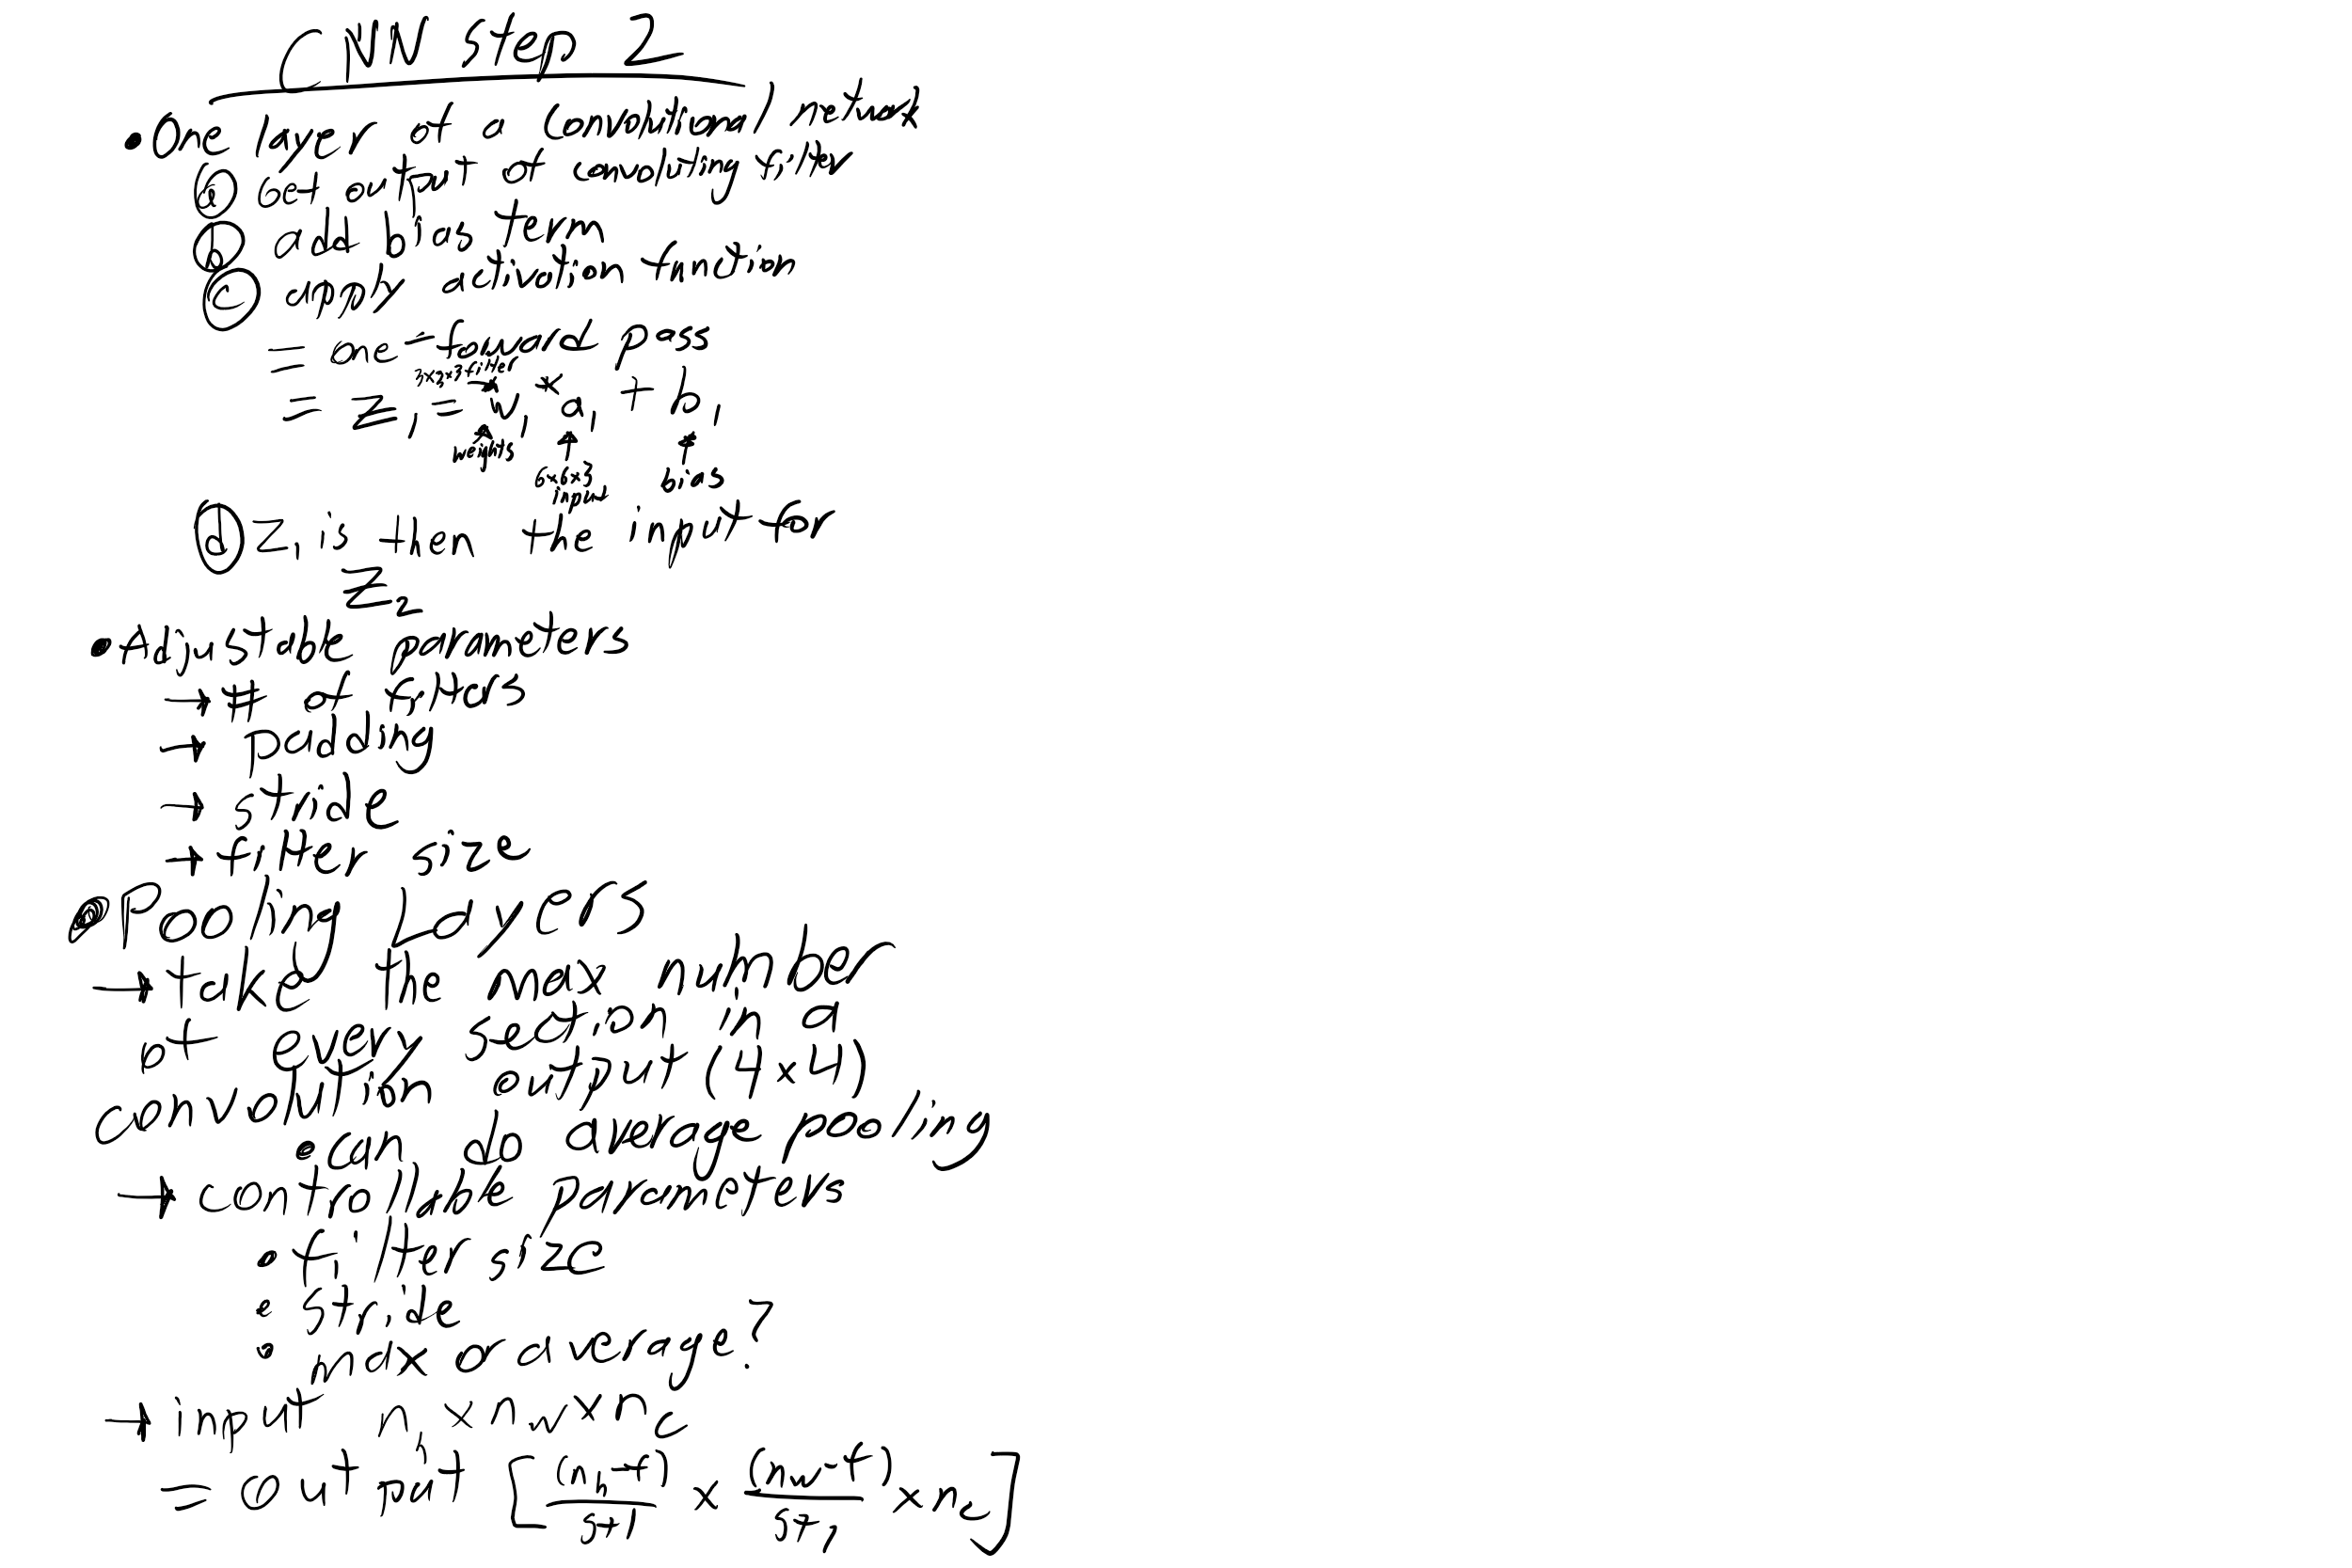 CNN step 2
• One layer of a Convolutional network
ⓐ Get output of convoluting filter
ⓑ add bias term
ⓒ apply activation function
= one forward pass
3×3×3 filter
= Z₁ = w₁ * a₁ + b₁
weights
6×6×3 input
bias
ⓓ Z₁ is then the input for
Z₂
• Adjustable parameters
→ # of filters
→ padding
→ stride
→ filter size
• Pooling Layers
→ take the max number
of every section in a
convolution output (4×4)
• can do average pooling
→ controllable parameters
• filter size
• stride
• max or average?
→ input nₕ × n_w × n_c
= output [(nₕ-f)/s+1 × (n_w-f)/s+1 × n_c]